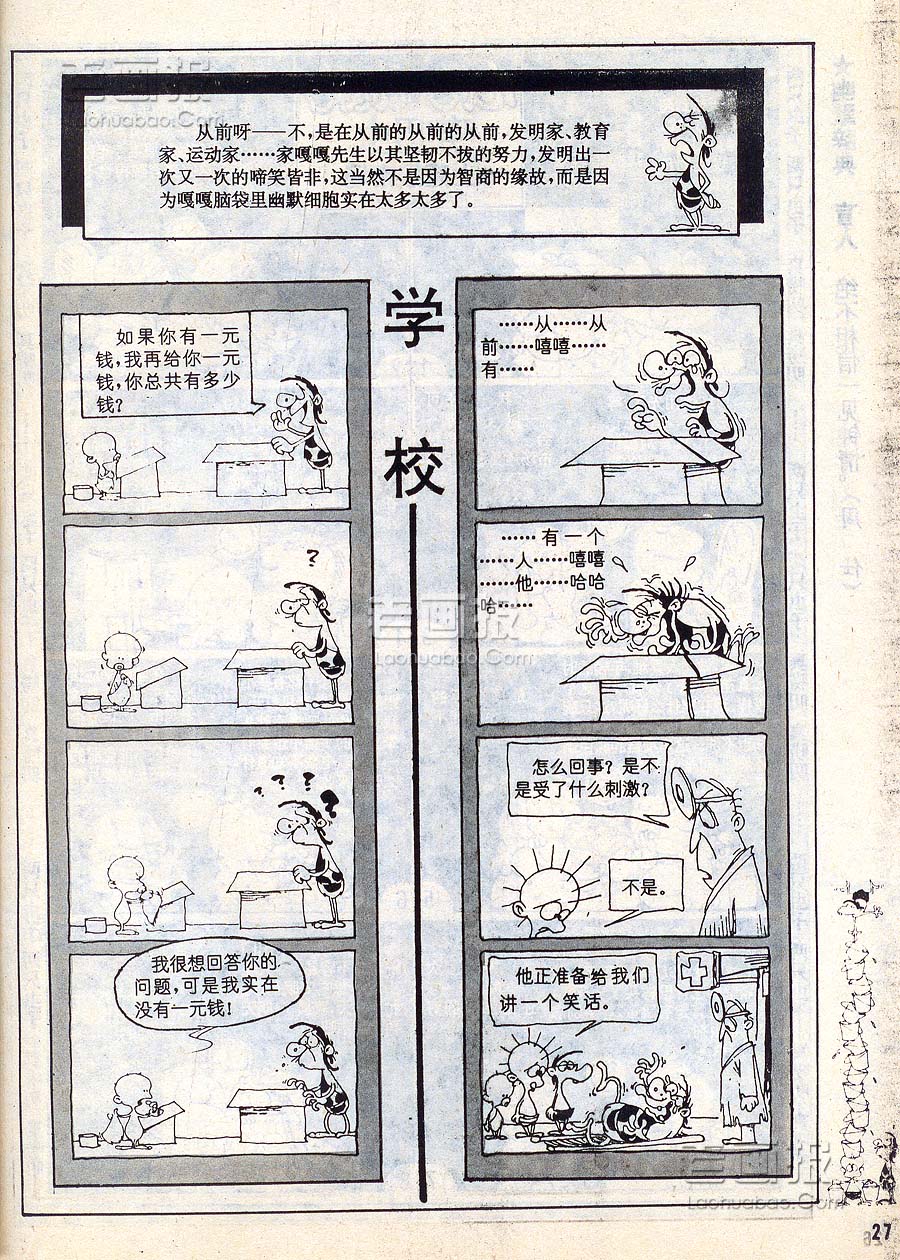 从前呀——不，是在从前的从前的从前，发明家、教育
家、运动家……家嘎嘎先生以其坚韧不拔的努力，发明出一
次又一次的啼笑皆非，这当然不是因为智商的缘故，而是因
为嘎嘎脑袋里幽默细胞实在太多太多了。
学
校
如果你有一元
钱，我再给你一元
钱，你总共有多少
钱？
?
? ? ? ?
我很想回答你的
问题，可是我实在
没有一元钱！
……从……从
前……嘻嘻……
有……
……有一个
……人……嘻嘻
……他……哈哈
哈……
怎么回事？是不
是受了什么刺激？
不是。
他正准备给我们
讲一个笑话。
27
老画报
Laohuabao.Com
老画报
Laohuabao.Com
老画报
Laohuabao.Com